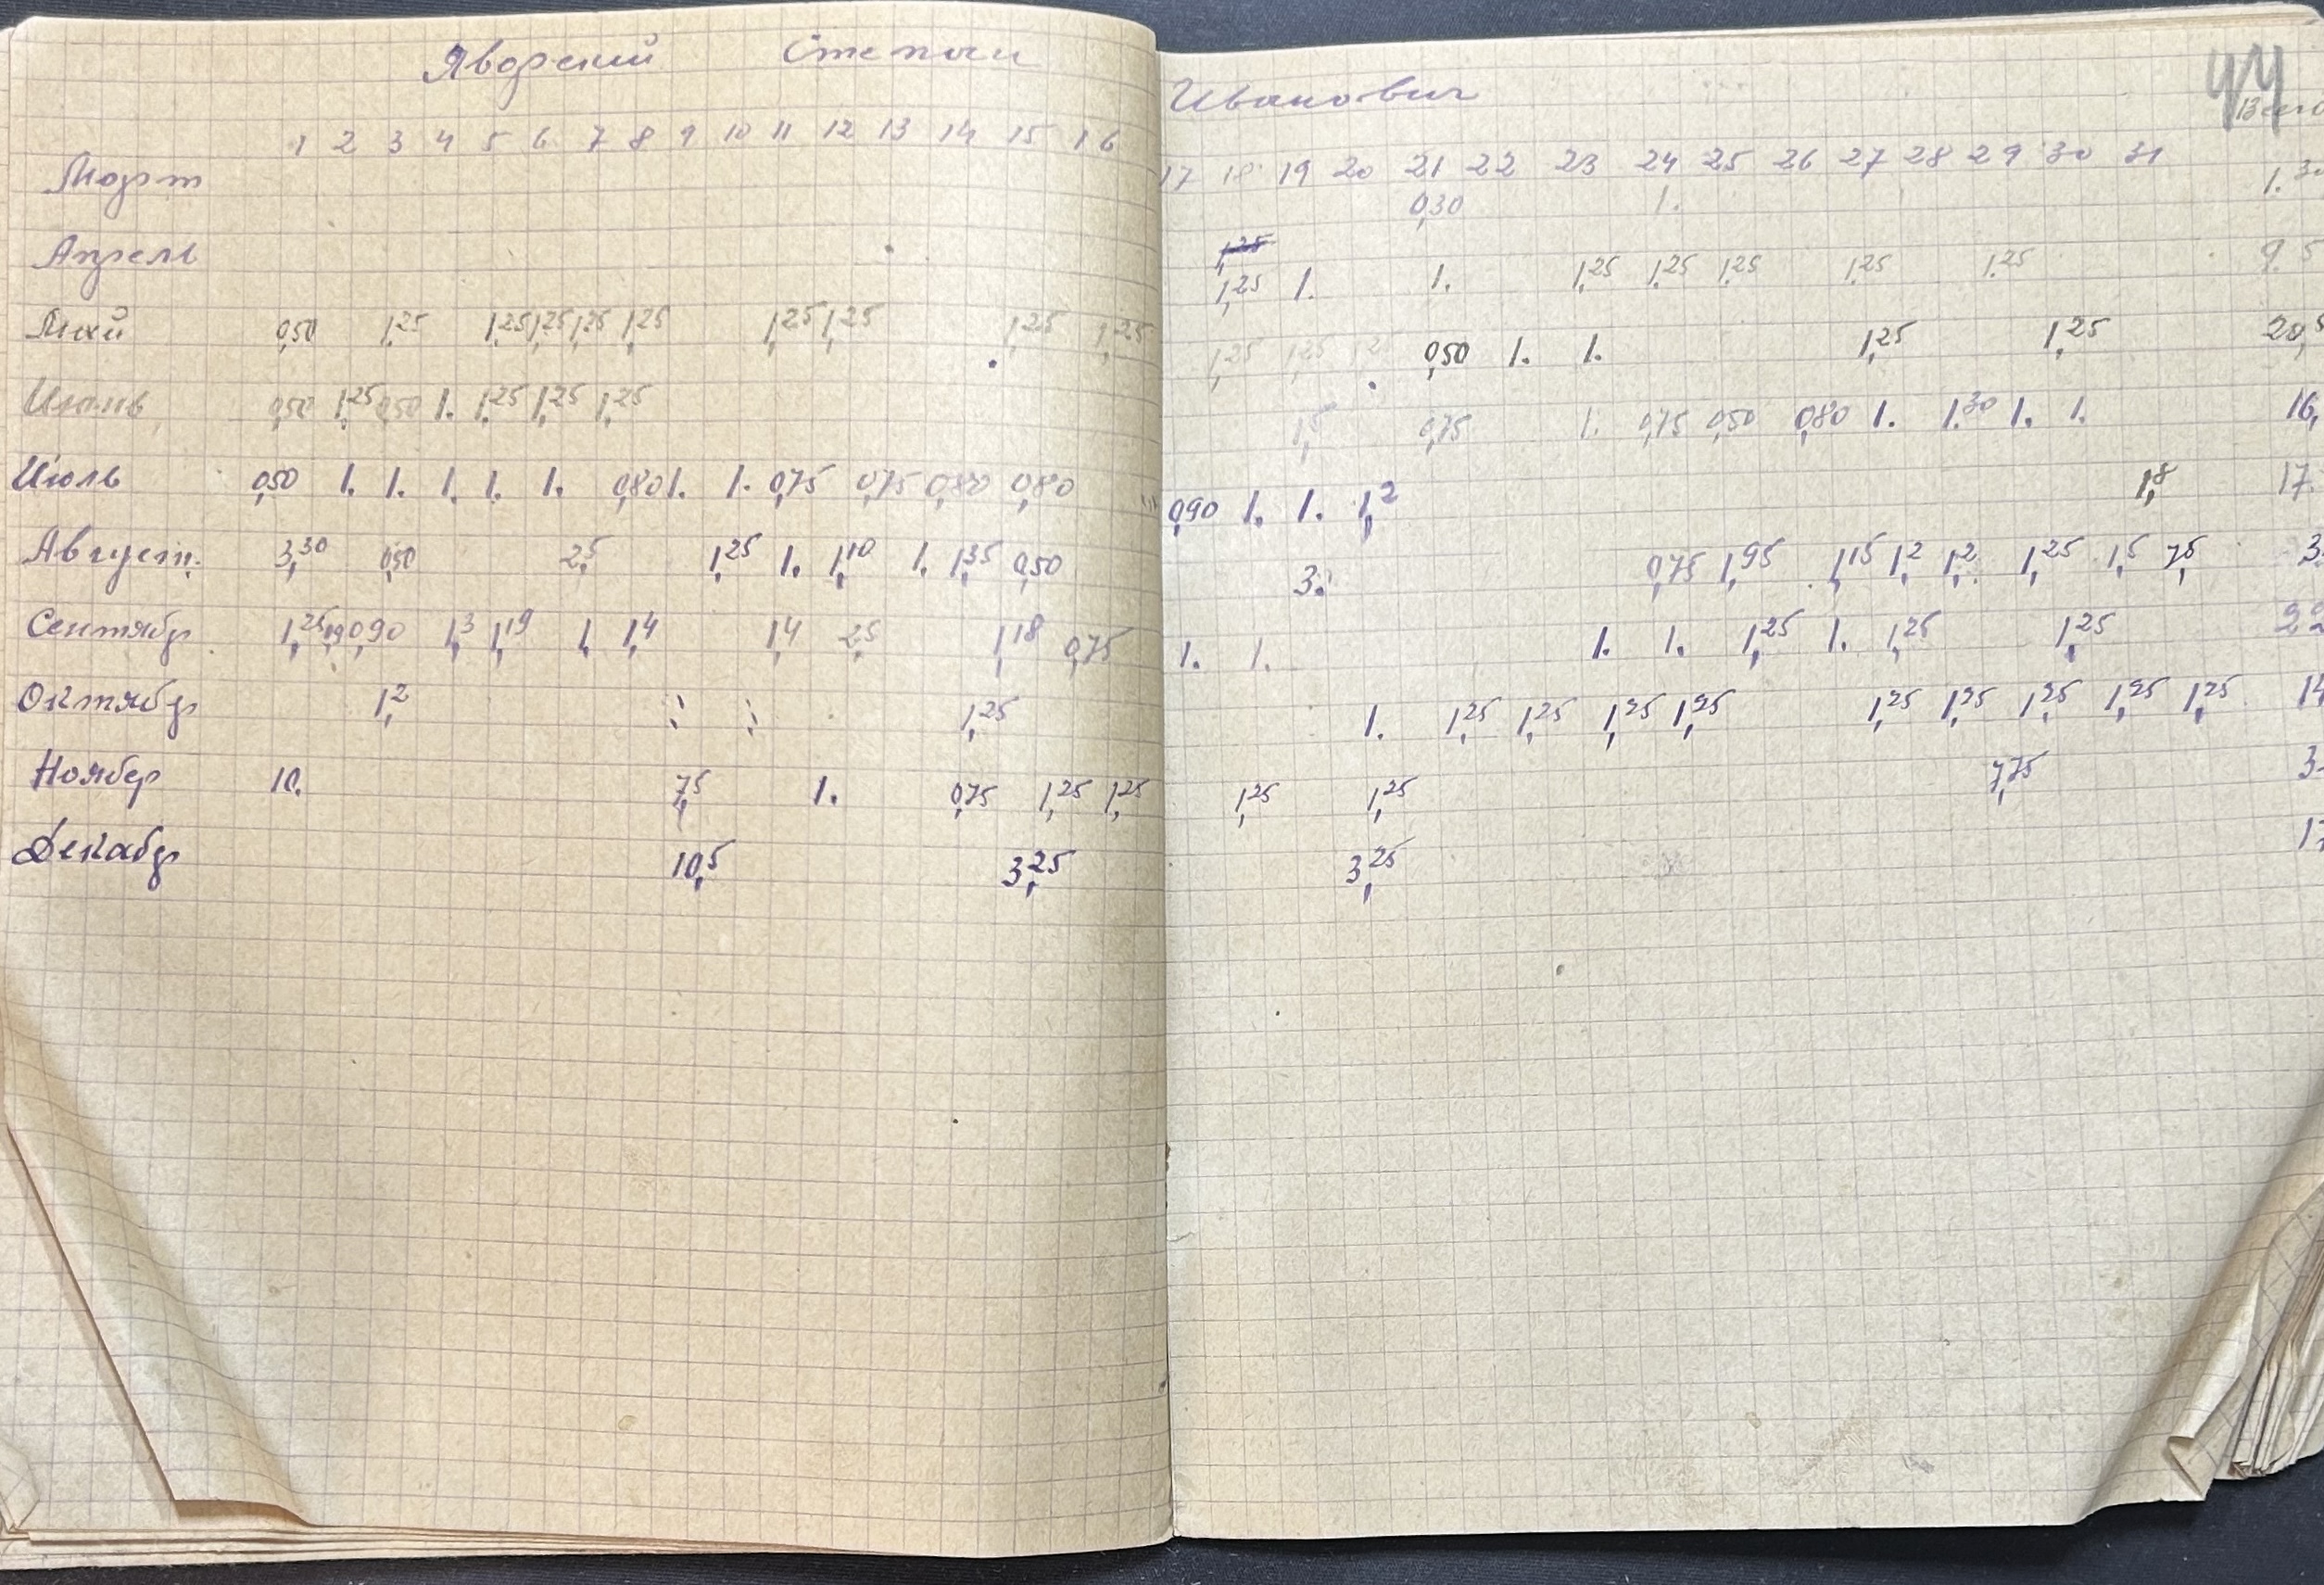 Яворский Степан Иванович
44
1 2 3 4 5 6 7 8 9 10 11 12 13 14 15 16 17 18 19 20 21 22 23 24 25 26 27 28 29 30 31
Март 0,30 1. 1.30
1,25
Апрель 1,25 1. 1. 1,25 1,25 1,25 1,25 1,25 9.5
Май 0,50 1,25 1,25 1,25 1,25 1,25 1,25 1,25 1,25 1,25 1,25 1,25 1,25 0,50 1. 1. 1,25 1,25 20,5
Июнь 0,50 1,25 0,50 1. 1,25 1,25 1,25 1,5 0,75 1. 0,75 0,50 0,80 1. 1.30 1. 1. 16,
Июль 0,50 1. 1. 1. 1. 1. 0,80 1. 1. 0,75 0,75 0,80 0,80 0,90 1. 1. 1,2 1,8 17.
Август. 3,30 0,50 2,5 1,25 1. 1,10 1. 1,35 0,50 3. 0,75 1,95 1,15 1,2 1,2 1,25 1,5 7,5 3
Сентябр 1,25 0,90 1,3 1,19 1, 1,4 1,4 2,5 1,18 0,75 1. 1. 1. 1. 1,25 1. 1,25 1,25 22
Октябр 1,2 1,25 1. 1,25 1,25 1,25 1,25 1,25 1,25 1,25 1,25 1,25 14
Ноябер 10. 7,5 1. 0,75 1,25 1,25 1,25 1,25 7,75 3
Декабр 10,5 3,25 3,25 17